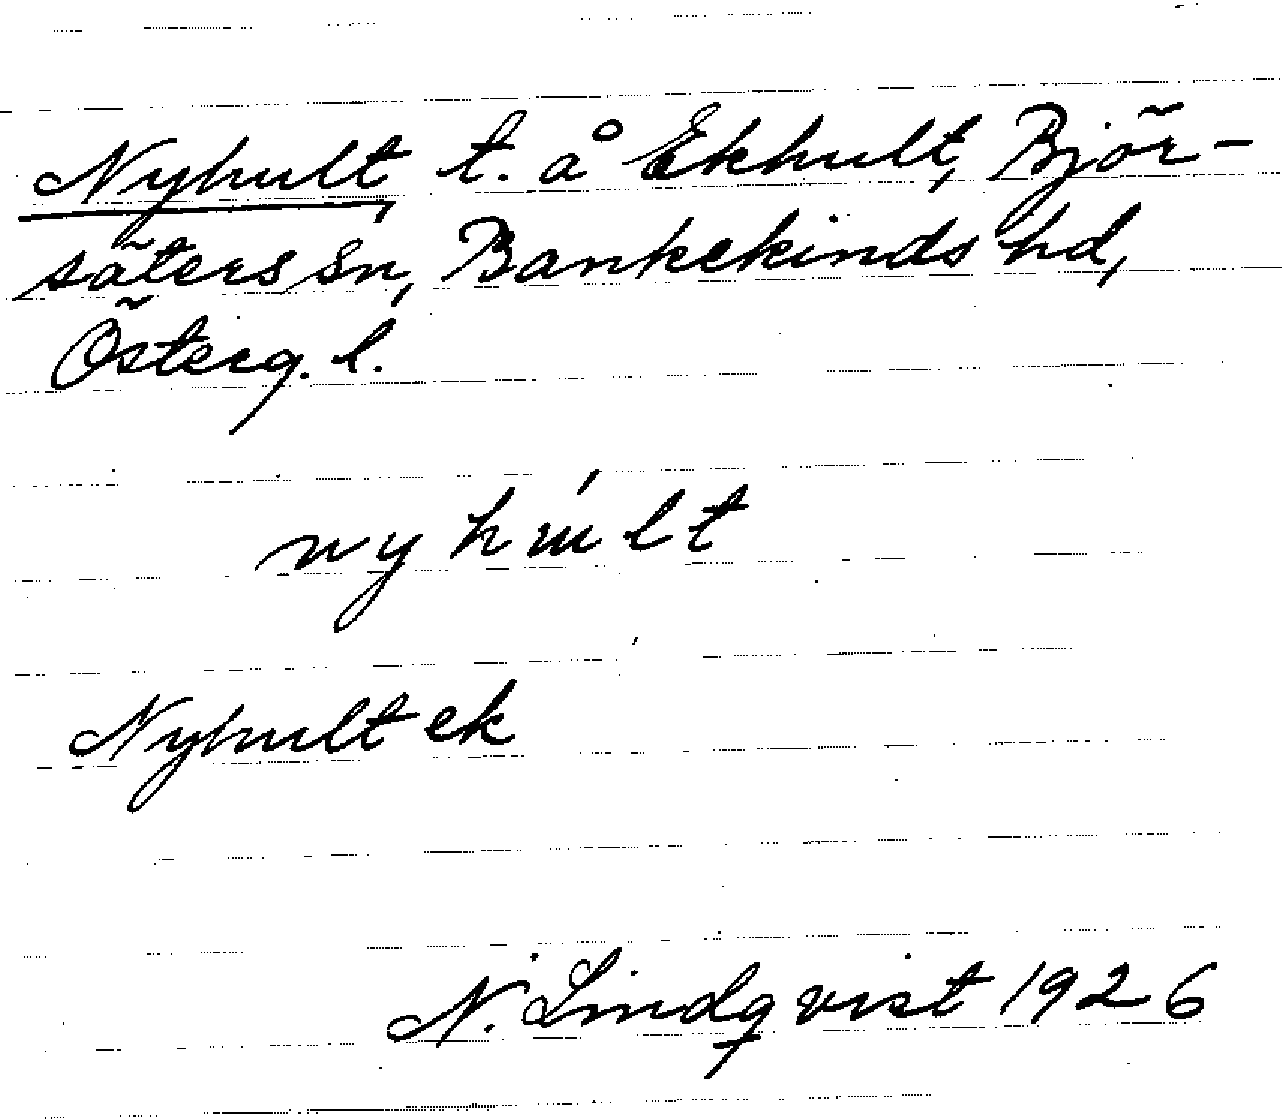 Nyhult, t. å Ekhult, Björ-
säters sn, Bankekinds hd,
Österg. l.
nyhu̍lt
Nyhult ek
N. Lindqvist 1926